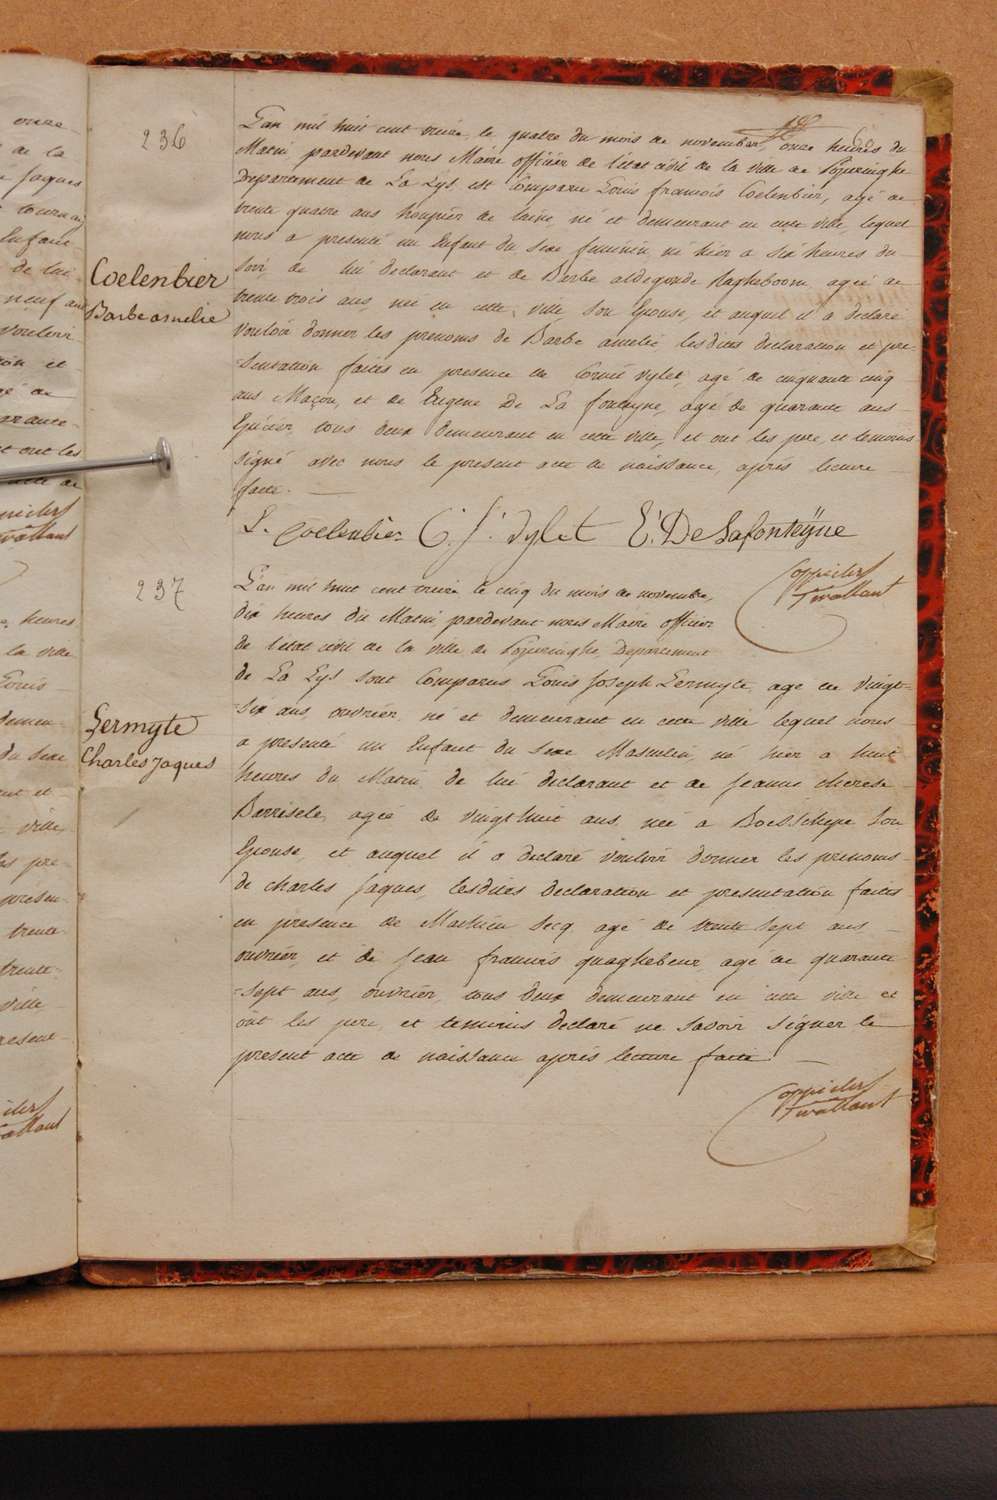 236
L'an mil huit cent treize, le quatre du mois de novembre, onze heures du
Matin pardevant nous Maire officier de l'état civil de la ville de Poperinghe
Departement de La Lys, est Comparu Louis francois Coelenbier, agé de
trente quatre ans houpier de laine, né et demeurant en cette ville, lequel
nous a presenté un Enfant du sexe feminin, né hier a six heures du
Coelenbier
Barbe amelie
soir, de lui declarant et de Barbe aldegonde hagheboom, agée de
trente trois ans, née en cette ville son Epouse, et auquel il a declaré
vouloir donner les prenoms de Barbe amelie lesdites declaration et pre
-sentation faites en presence de Corneil vylet, agé de cinquante cinq
ans Maçon, et de Eugene De La fonteyne, agé de quarante ans
Epicier, tous deux demeurant en cette ville, et ont les pere, et temoins
signé avec nous le present acte de naissance, après lecture
faite.
L. Coelenbier C. J. Vylet E. De Lafonteÿne
237
L'an mil huit cent treize le cinq du mois de novembre,
dix heures du Matin pardevant nous Maire officier
de l'état civil de la ville de Poperinghe, Departement
de La Lys sont Comparus Louis Joseph Lermyte, agé de vingt-
-six ans, ouvrier, né et demeurant en cette ville lequel nous
Lermyte
Charles Jaques
a presenté un Enfant du sexe Masculin, né hier a huit
heures du Matin de lui declarant et de Jeanne therese
Barrisele, agée de vingt huit ans, née a Boesschepe son
Epouse, et auquel il a declaré vouloir donner les prenoms
de Charles Jaques, lesdites declaration et presentation faites
en presence de Mathieu Secq, agé de trente sept ans
ouvrier, et de Jean francois quaghebeur, agé de quarante
-sept ans, ouvrier, tous deux demeurant en cette ville et
ont les pere, et temoins declaré ne savoir signer le
present acte de naissance après lecture faite.